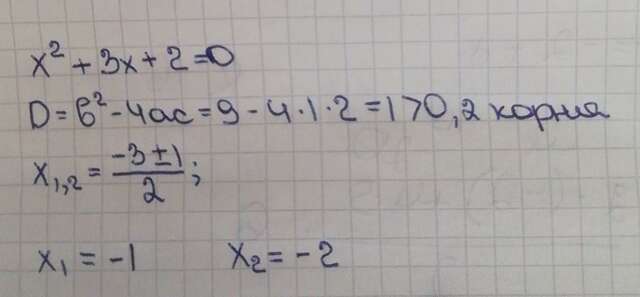 x² + 3x + 2 = 0
D = b² - 4ac = 9 - 4·1·2 = 1 > 0, 2 корня
x₁,₂ = (-3 ± 1)/2 ;
x₁ = -1 x₂ = -2